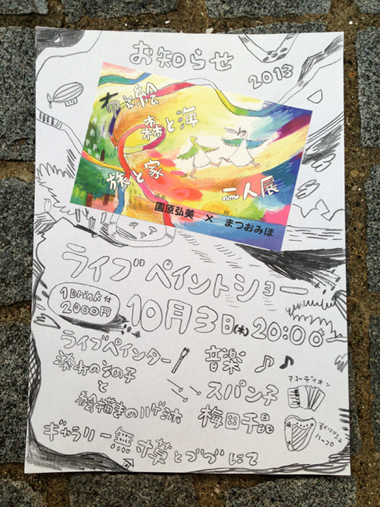 お知らせ
2013
大きな絵
森と海
旅と家
二人展
園原弘美 × まつおみほ
ライブペイントショー
1Drink付
2000円
10月3日(木) 20:00~
ライブペインター
音楽
流しの その子
スパン子
アコーディオン
と
絵描きの
梅田千晶
アイリッシュ
ハープ
ギャラリー無寸草とづづにて